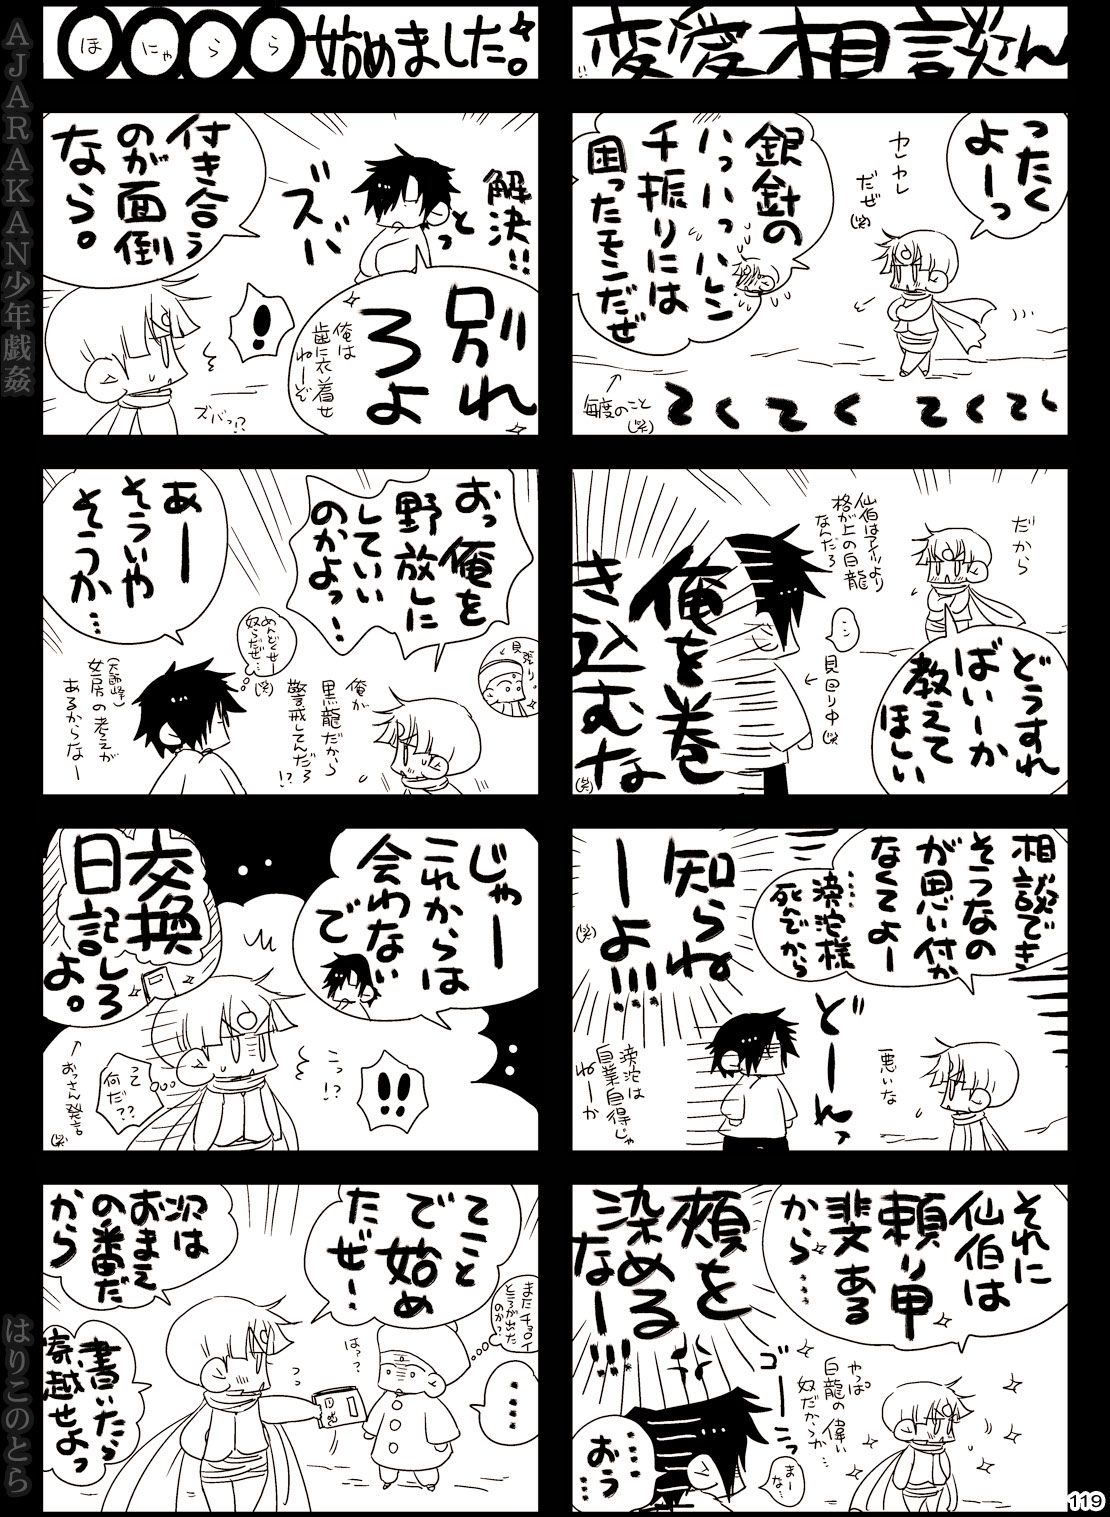 変愛相談
ったく
よーっ
ヤレヤレ
だぜ(笑)
銀針の
ハッハッハレンチ振りには
困ったモンだぜ
毎度のこと
(笑)
てくてくてくてく
だから
どうすれ
ばいーか
教えて
ほしい
仙伯はアイツより
格が上の白龍
なんだろ
見回り中(笑)
俺を巻
き込むな
(笑)
相談でき
そうなの
が思い付か
なくてよー
滂沱様
死んだから
どーんっ
悪いな
知らね
ーよ!!!
(笑)
滂沱は
自業自得じゃ
ねーか
それに
仙伯は
頼り甲
斐ある
から…
やっぱ
白龍の偉い
奴だからか
頬を
染める
なー!!!
ゴーーっ
まーな…
……
おう…
ほにゃらら始めました。
解決!!
っと
ズバ
付き合う
のが面倒
なら。
別れ
ろよ
俺は
歯に衣着せ
ねーぞ
ズバっ!?
おっ俺を
野放しに
していい
のかよっ…
見張り
俺が
黒龍だから
警戒してんだろ
!?
あー
そういや
そうか…
めんどくせー
奴らだぜ…
(笑)
女房の考えが
あるからなー
じゃー
これからは
会わない
で
交換
日記しろ
よ。
こっ!?
!!
って
何だ??
おっさん発言
(笑)
てこと
で始め
たぜ…
またチョロイ
ところが出た
のか?
は??
日記
……
次は
おまえ
の番だ
から
書いたら
寄越せよっ
AJARAKAN少年戯姦
はりこのとら
119